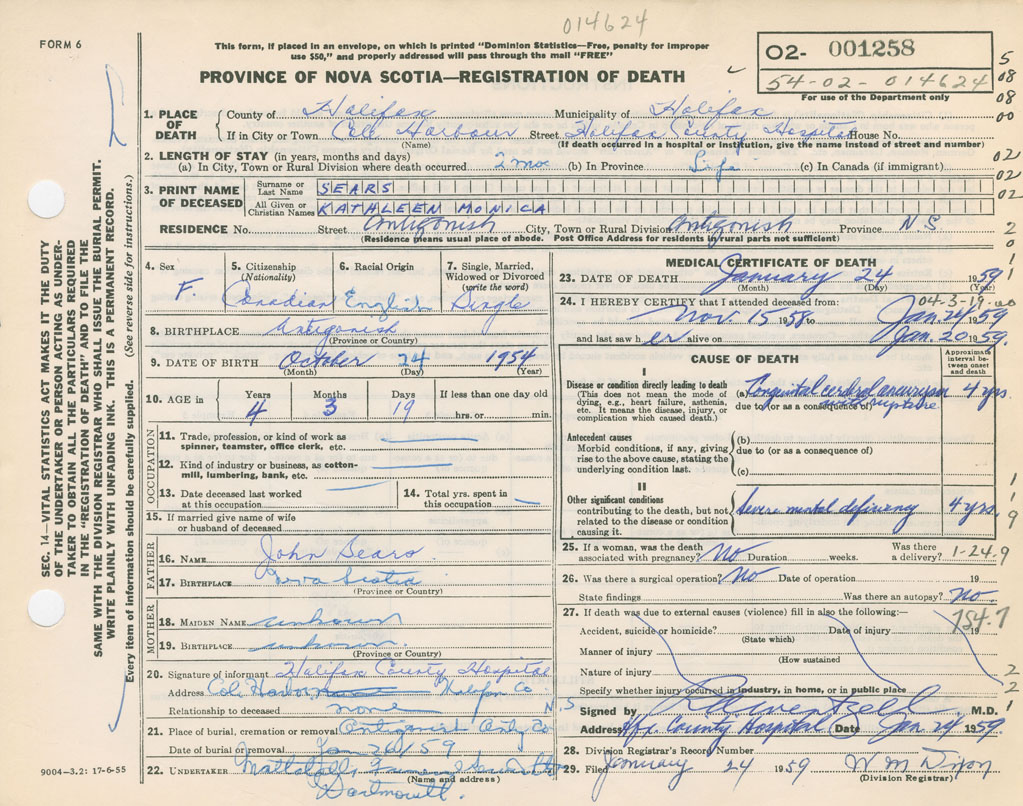 014624
FORM 6
This form, if placed in an envelope, on which is printed "Dominion Statistics—Free, penalty for improper
use $50," and properly addressed will pass through the mail "FREE"
PROVINCE OF NOVA SCOTIA—REGISTRATION OF DEATH
02- 001258
54-02-014624
For use of the Department only
5
08
08
00
02
02
02
2
0
1
1
1
9
2
2
1
SEC. 14—VITAL STATISTICS ACT MAKES IT THE DUTY
OF THE UNDERTAKER OR PERSON ACTING AS UNDER-
TAKER TO OBTAIN ALL THE PARTICULARS REQUIRED
IN THE "REGISTRATION OF DEATH" AND TO FILE THE
SAME WITH THE DIVISION REGISTRAR WHO SHALL ISSUE THE BURIAL PERMIT.
WRITE PLAINLY WITH UNFADING INK. THIS IS A PERMANENT RECORD.
Every item of information should be carefully supplied. (See reverse side for instructions.)
1. PLACE OF DEATH
County of Halifax Municipality of Halifax
If in City or Town Cole Harbour Street Halifax County Hospital House No.
(Name) (If death occurred in a hospital or institution, give the name instead of street and number)
2. LENGTH OF STAY (in years, months and days)
(a) In City, Town or Rural Division where death occurred 2 mos (b) In Province Life (c) In Canada (if immigrant)
3. PRINT NAME OF DECEASED
Surname or Last Name SEARS
All Given or Christian Names KATHLEEN MONICA
RESIDENCE No. Street Antigonish City, Town or Rural Division Antigonish Province N.S.
(Residence means usual place of abode. Post Office Address for residents in rural parts not sufficient)
4. Sex F
5. Citizenship (Nationality) Canadian
6. Racial Origin English
7. Single, Married, Widowed or Divorced (write the word) Single
8. BIRTHPLACE Antigonish
(Province or Country)
9. DATE OF BIRTH October 24 1954
(Month) (Day) (Year)
10. AGE in Years 4 Months 3 Days 19 If less than one day old
hrs. or min.
OCCUPATION
11. Trade, profession, or kind of work as
spinner, teamster, office clerk, etc.
12. Kind of industry or business, as cotton-
mill, lumbering, bank, etc.
13. Date deceased last worked
at this occupation
14. Total yrs. spent in
this occupation
15. If married give name of wife
or husband of deceased
FATHER
16. NAME John Sears
17. BIRTHPLACE Nova Scotia
(Province or Country)
MOTHER
18. MAIDEN NAME unknown
19. BIRTHPLACE unknown
(Province or Country)
20. Signature of informant Halifax County Hospital
Address Cole Harbour Halifax Co
N.S
Relationship to deceased none
21. Place of burial, cremation or removal Antigonish Co
Date of burial or removal Jan 26/59
22. UNDERTAKER
(Name and address)
Dartmouth.
9004—3.2: 17-6-55
MEDICAL CERTIFICATE OF DEATH
23. DATE OF DEATH January 24 1959
(Month) (Day) (Year)
24. I HEREBY CERTIFY that I attended deceased from: 04-3-19.00
Nov. 15 1958 to Jan 24 1959
and last saw h er alive on Jan. 20 1959.
CAUSE OF DEATH
Approximate interval between onset and death
I
Disease or condition directly leading to death
(This does not mean the mode of
dying, e.g., heart failure, asthenia,
etc. It means the disease, injury, or
complication which caused death.)
(a) Congenital cerebral aneurysm 4 yrs
due to (or as a consequence of) with rupture
Antecedent causes
Morbid conditions, if any, giving
rise to the above cause, stating the
underlying condition last.
(b)
due to (or as a consequence of)
(c)
II
Other significant conditions
contributing to the death, but not
related to the disease or condition
causing it.
Severe mental deficiency 4 yrs.
25. If a woman, was the death
associated with pregnancy? No Duration weeks. Was there
a delivery? 1-24.9
26. Was there a surgical operation? No Date of operation 19
State findings Was there an autopsy? No.
27. If death was due to external causes (violence) fill in also the following:—
754.7
Accident, suicide or homicide? Date of injury 19
(State which)
Manner of injury
(How sustained
Nature of injury
Specify whether injury occurred in industry, in home, or in public place
Signed by M.D.
Address Hfx County Hospital Date Jan 24 1959
28. Division Registrar's Record Number
29. Filed January 24 1959 W M Dixon
(Division Registrar)